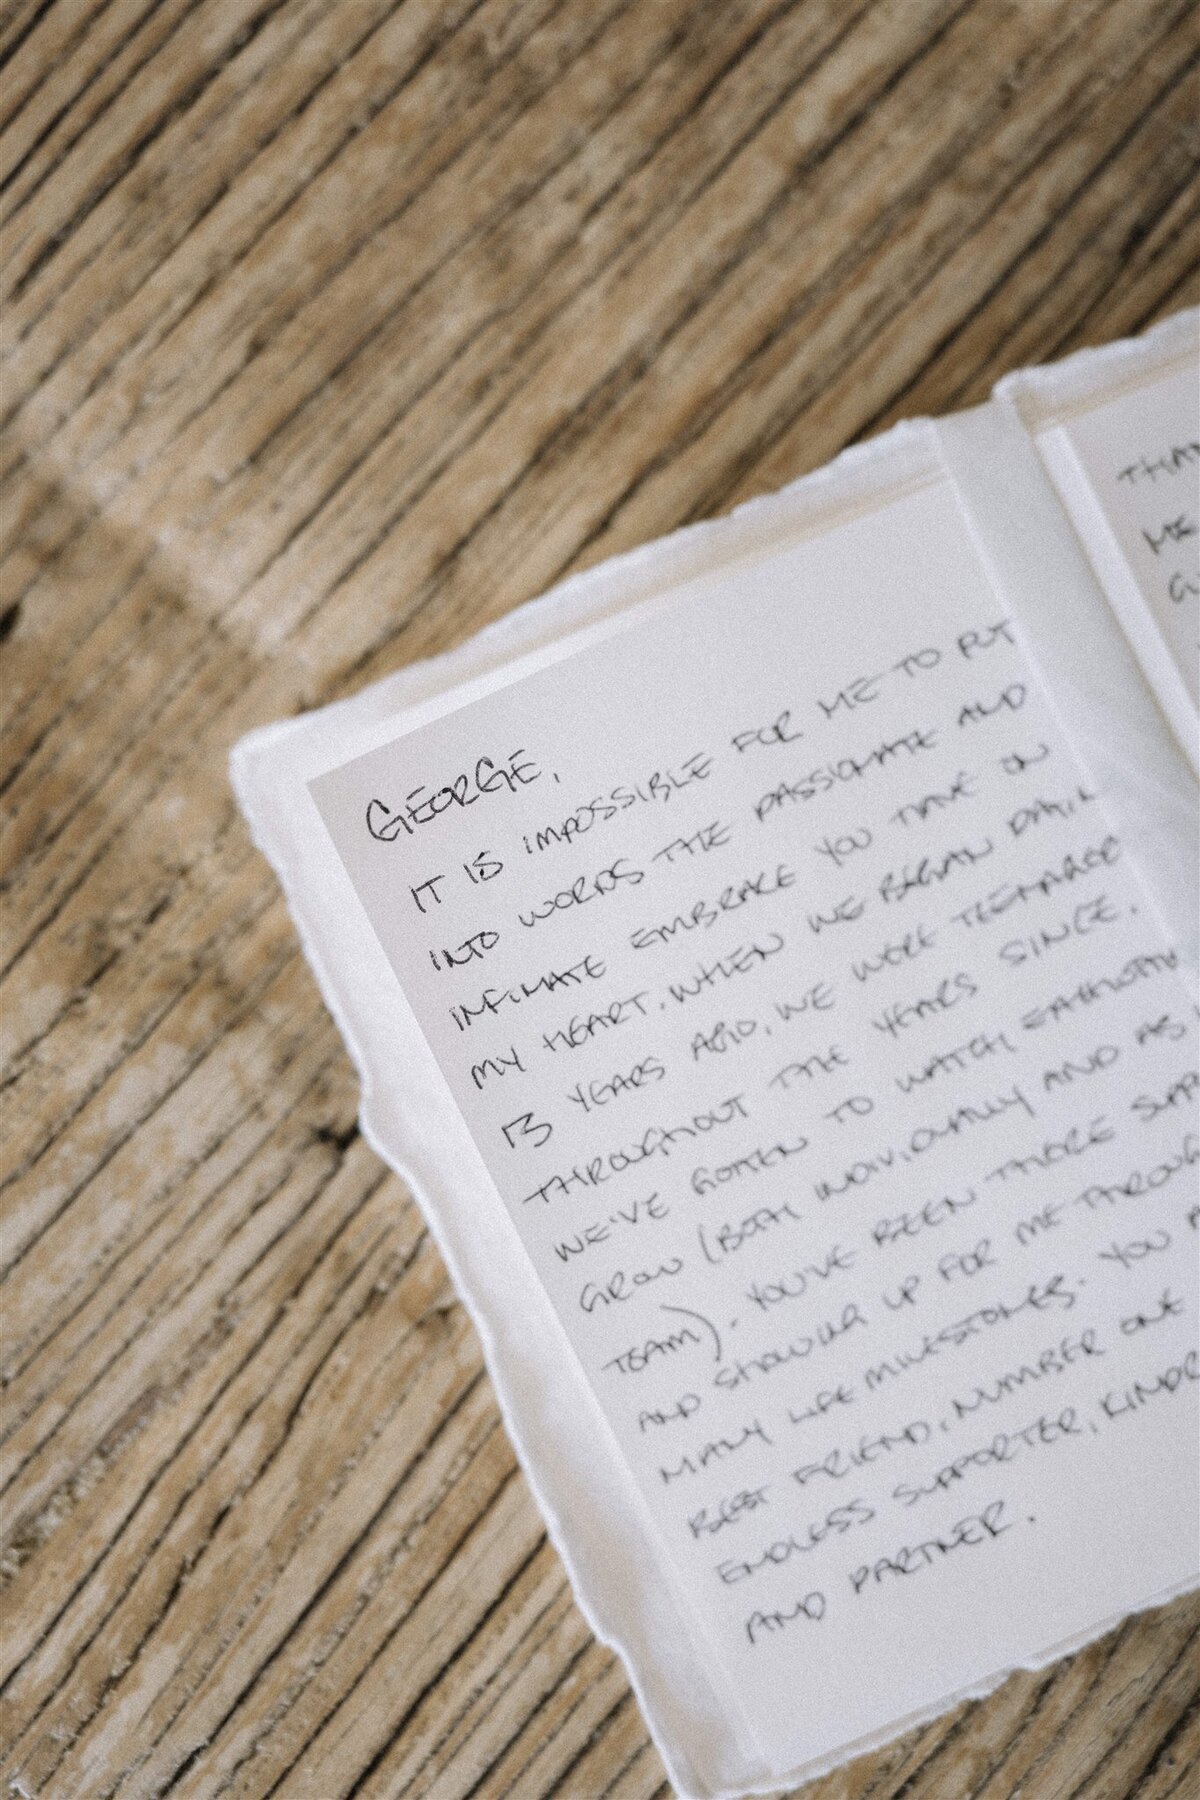 GEORGE,
IT IS IMPOSSIBLE FOR ME TO PUT
INTO WORDS THE PASSIONATE AND
INTIMATE EMBRACE YOU HAVE ON
MY HEART. WHEN WE BEGAN
13 YEARS AGO, WE WERE TEENAGERS
THROUGHOUT THE YEARS SINCE,
WE'VE GOTTEN TO WATCH EACHOTHER
GROW (BOTH INDIVIDUALLY AND AS
TEAM). YOU'VE BEEN THERE SUPP
AND SHOWING UP FOR ME THROUG
MANY LIFE MILESTONES. YOU
BEST FRIEND, NUMBER ONE
ENDLESS SUPPORTER, KINDR
AND PARTNER.
THA
ME